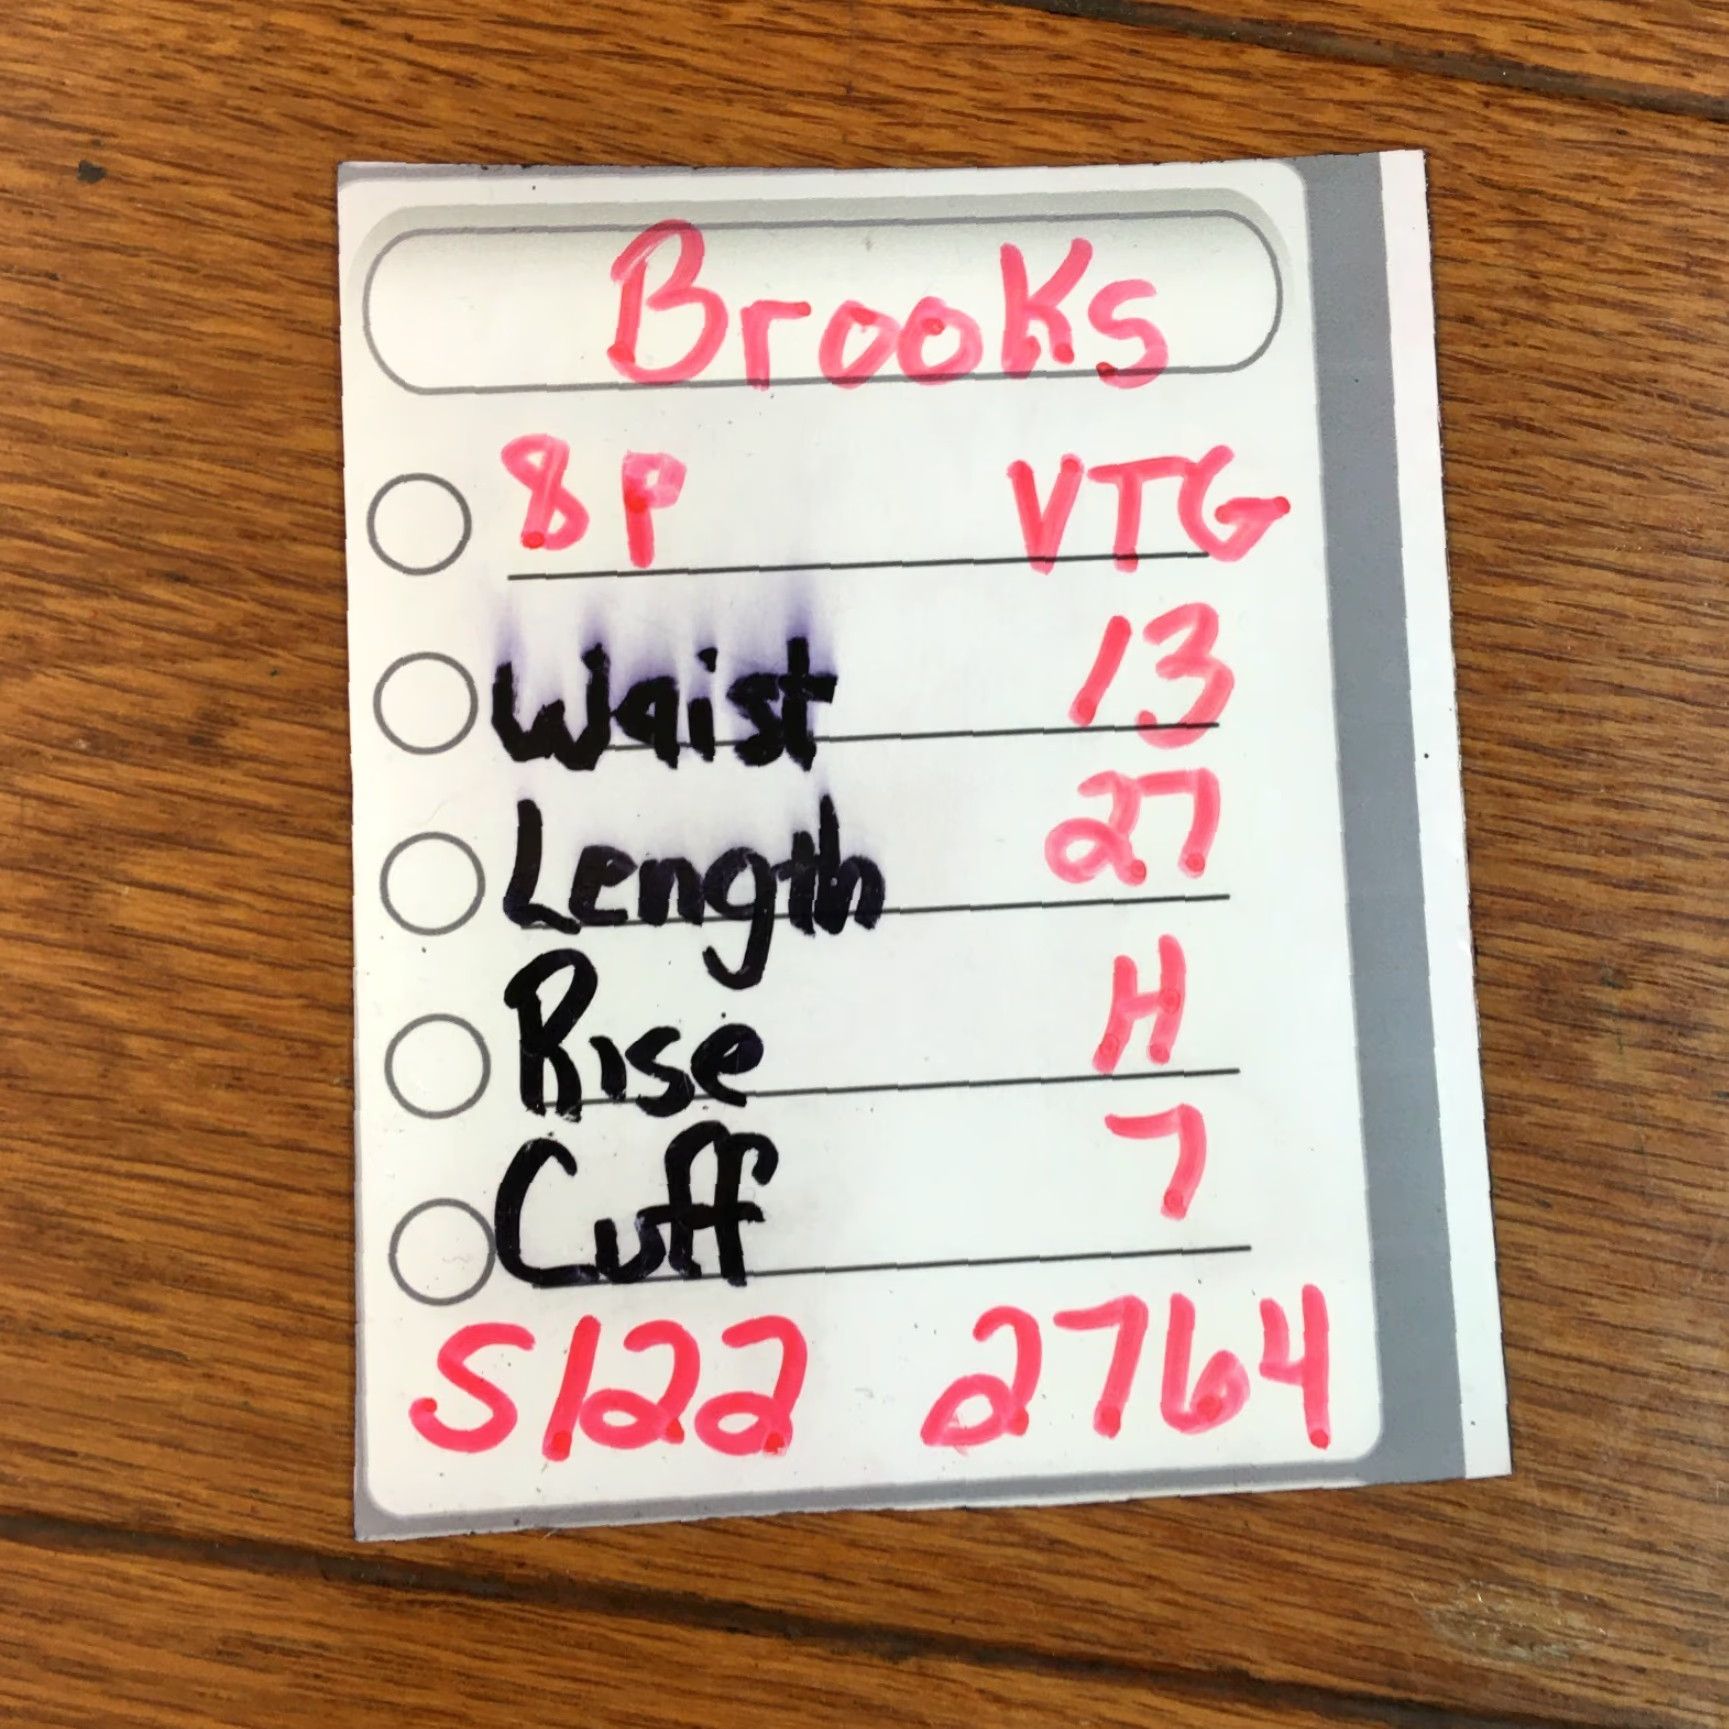 Brooks
8P VTG
Waist 13
Length 27
Rise H
Cuff 7
S122 2764